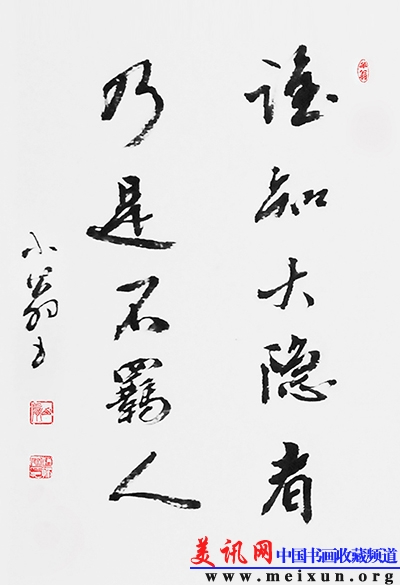 谁知大隐者
乃是不羁人
小翁书
美讯网 中国书画收藏频道
www.meixun.org